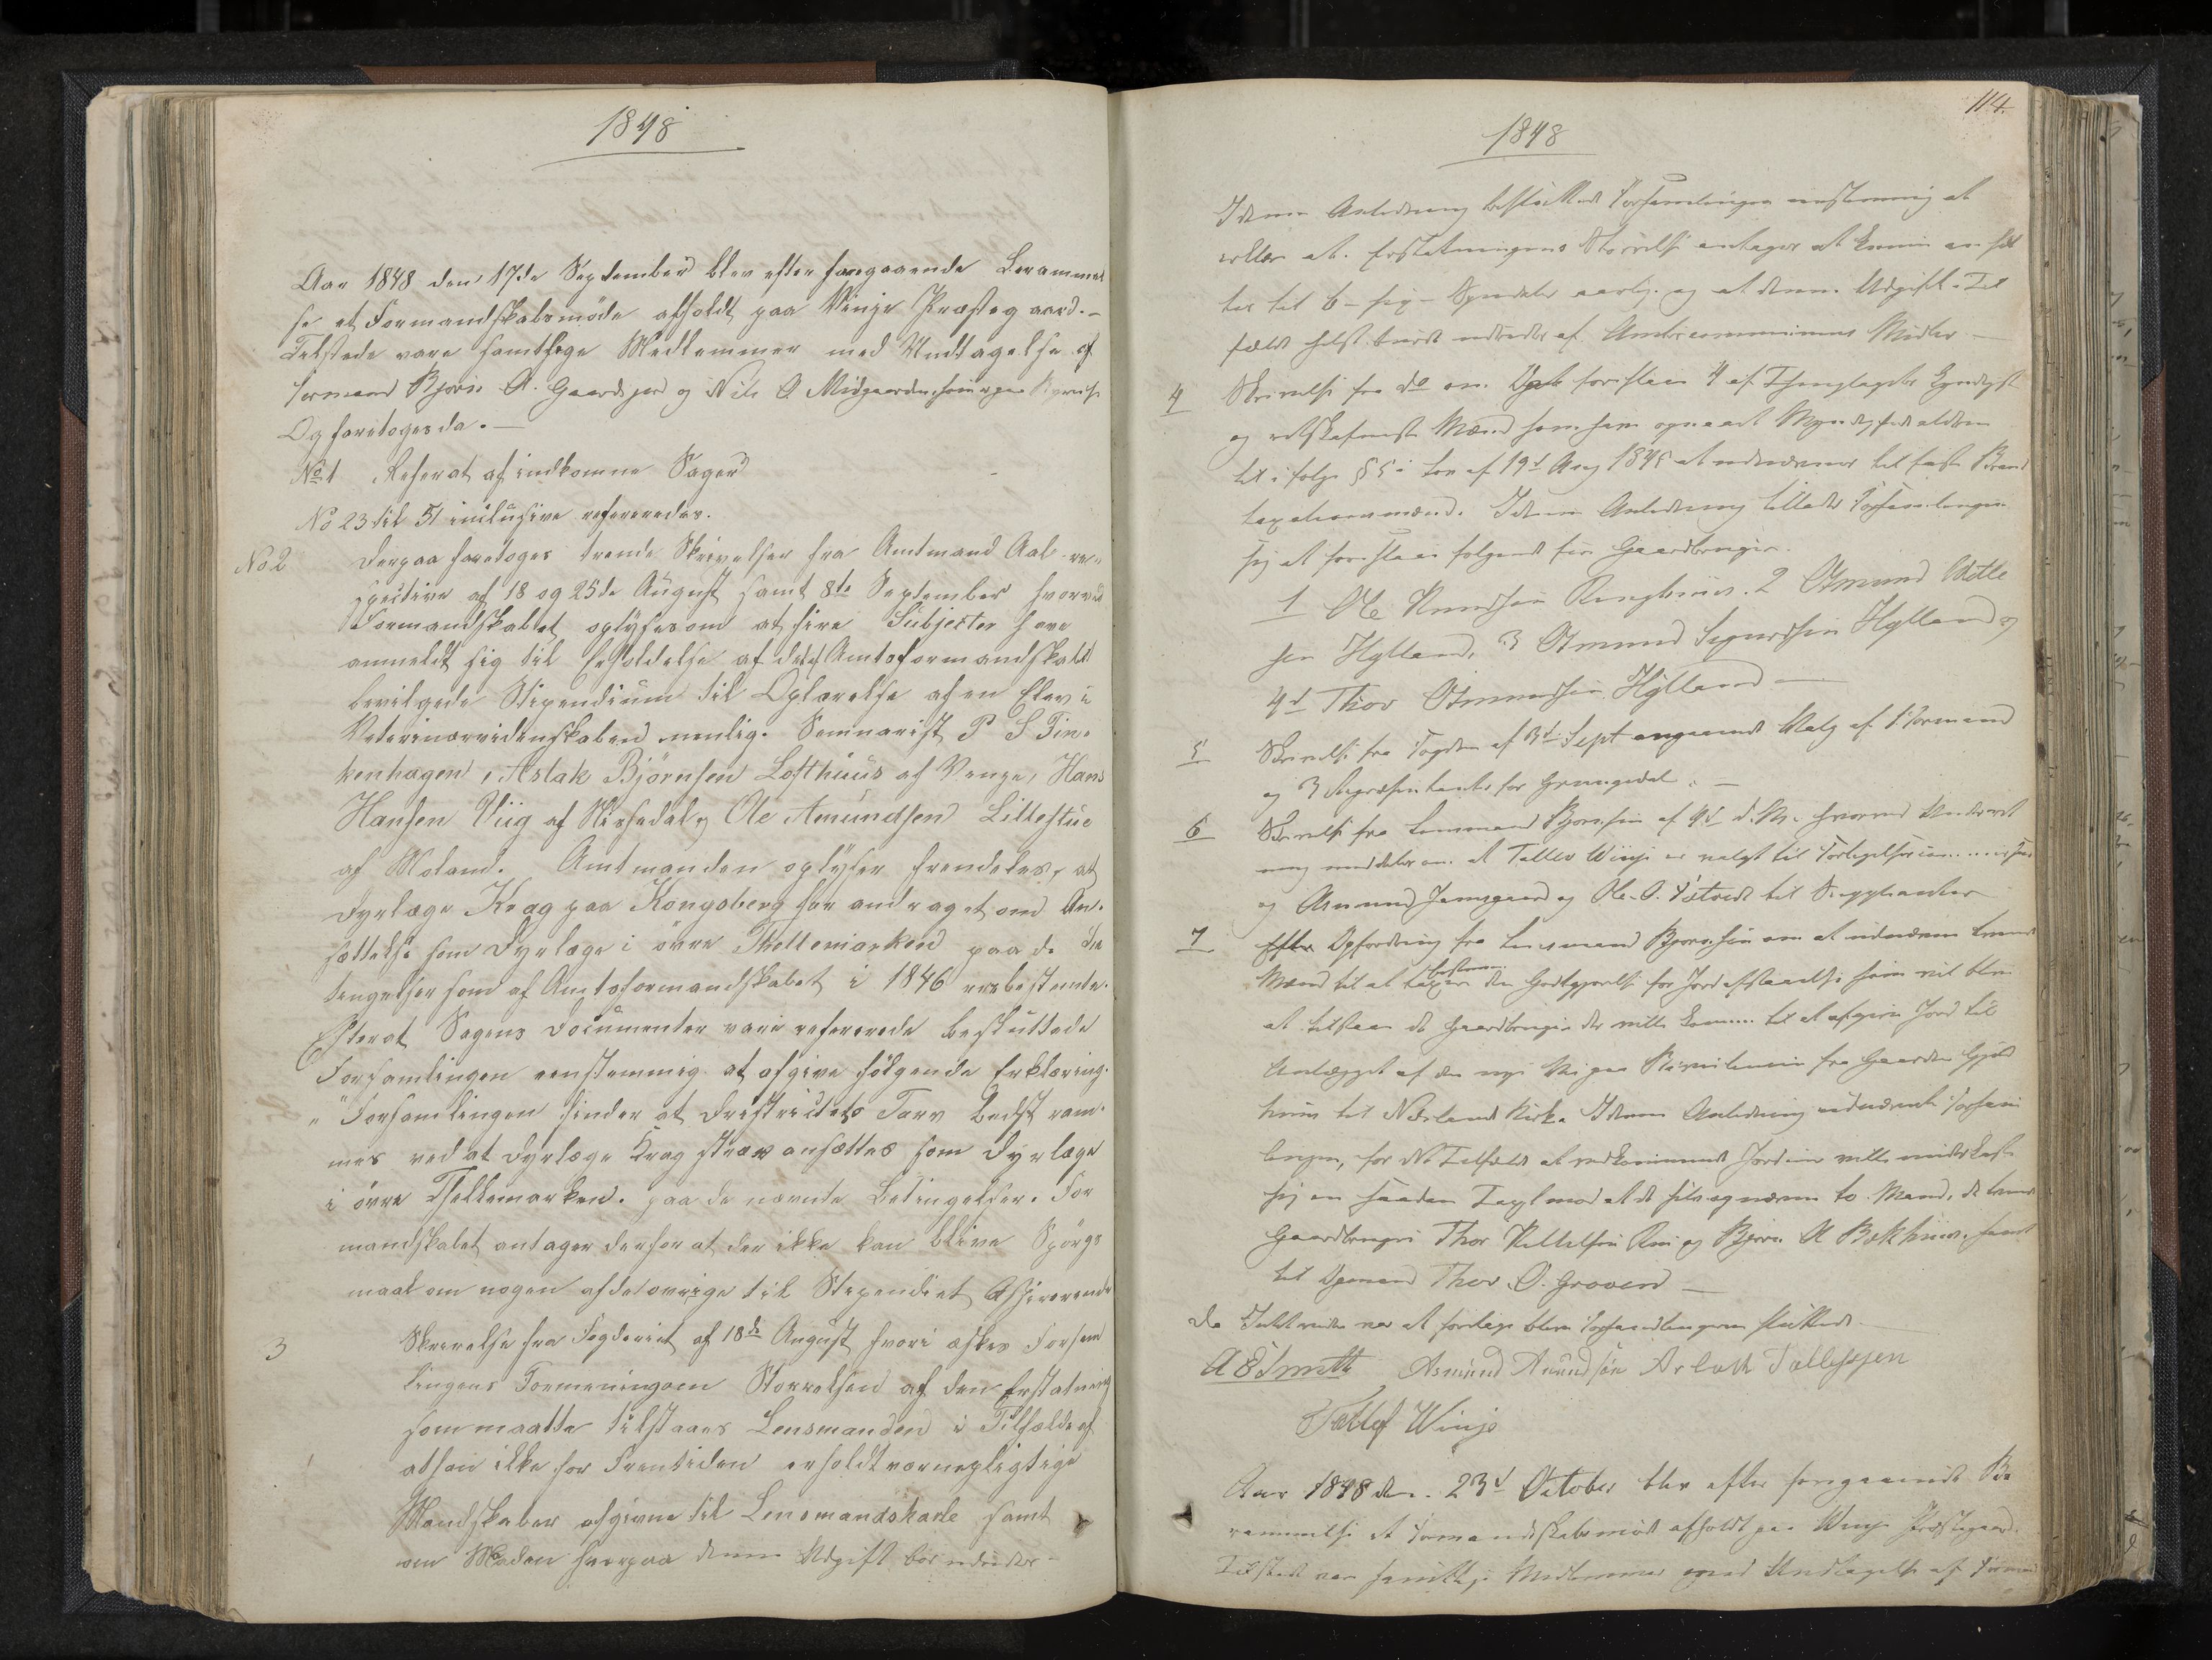 1848
Aar 1848 den 17de September blev efter foregaaende Berammel
se et Formandskabsmöde afholdt paa Vinje Præstegaard.-
Tilstede vare samtlige Medlemmer med Undtagelse af
Formand Björn A. Gaardsjord og Nils O Midgaarden, som er paa
Og foretoges da.-
No 1 Referat af indkomne Sager
No 23 til 51 inclusive refereredes.
No 2 Derpaa foretoges trende Skrivelser fra Amtmand Aal re-
spective af 18 og 25de August samt 8de September hvorved
Formandskabet oplyses om at fire Subjecter have
anmeldt sig til Erholdelse af det af Amtsformandskabet
bevilgede Stipendium til Oplærelse af en Elev i
Veterinærvidenskaben nemlig. Seminarist P S Tin-
kenhagen, Aslak Björnsen Lofthuus af Vinge, Hans
Hansen Viig af Nissedal og Ole Amundsen Lillestue
af Moland. Amtmanden oplyser fremdeles, at
Dyrlæge Krag paa Kongsberg har andraget om An-
sættelse som Dyrlæge i övre Thellemarken paa de Be
tingelser som af Amtsformandskabet i 1846 ere bestemte.
Efterat Sagens Documenter vare refererede besluttede
Forsamlingen eenstemmig at afgive fölgende Erklæring.
" Forsamlingen finder at Districtets Tarv bedst fram-
mes ved at Dyrlæge Krag strax ansættes som Dyrlæge
i övre Thellemarken. paa de nævnte Betingelser. For
mandskabet antager derfor at der ikke kan blive Spörgs
maal om nogen af de övrige til Stipendiet Aspirerende
3 Skrivelse fra Fogderiet af 18de August hvori æskes Forsam
lingens Formening om Störrelsen af den Erstatning
som maatte tilstaaes Lensmanden i Tilfælde af
at han ikke for Fremtiden erholdt værnepligtige
Mandskaber afgivne til Lensmandskarle samt
om Maaden hvorpaa denne Udgift bör udredes-
114.
1848
I denne Anledning besluttede Forsamlingen eenstemmig at
erklære at Erstatningens Störrelse antages at kunne ansæt
tes til 6 - sex - Speciedaler aarlig. og at denne Udgift i Til
fælde helst burde udredes af Amtscommunens Midler -
4 Skrivelse fra do om. at foreslaae 4 af Thinglagets kyndigste
og retskafneste Mænd som have opnaaet Myndighedsalderen
til ifölge § 5 i Lov af 19d Aug 1845 at udnævnes til faste Brand
taxationsmænd. I denne Anledning tillader Forsamlingen
sig at foreslaae fölgende fire Gaardbrugere.
1 Ole Knudsen Ringhuus. 2 Osmund Vetle
sen Hylland, 3 Osmund Sigurdsen Hylland og
4d Thor Osmundsen Hylland -
5 Skrivelse fra Fogden af 3d Sept angaaende Valg af 1 Formand
og 3 Repræsentanter for Grungedal. -
6 Skrivelse fra Lensmand Björnsen af 9d d. M. hvorved Underret
ning meddeles om at Tallev Winje er valgt til
og Asmund Jamsgaard og Ole O. til Suppleanter
7 Efter Opfordring fra Lensmand Björnsen om at udnævne trende
Mænd til at bestemme den Godtgjørelse for Jordafstaaelse som vil blive
at tilstaae de Gaardbrugere der ville komme til at afgive Jord til
Anlægget af den nye Vei paa fra Gaarden
huus til Nesland Kirke. I denne Anledning udnævnte Forsam
lingen, for det Tilfælde at vedkommende Jordeiere ville underkaste
sig en saadan Taxt mod at de selv opnævne to Mænd, de trende
Gaardbrugere Thor Kittelsen Rui og Björn A Bækhuus. samt
til Opmand Thor O. Grovend -
Da Intet videre var at foretage blev Forhandlingerne sluttede.
A B Smith Asmund Amundsön Aslack Tallefssen
Tallef Winje
Aar 1848 den. 23d October blev efter foregaaende Be
rammelse et Formandskabsmöde afholdt paa Winje Præstegaard.
Tilstede vare samtlige Medlemmer med Undtagelse af Formand